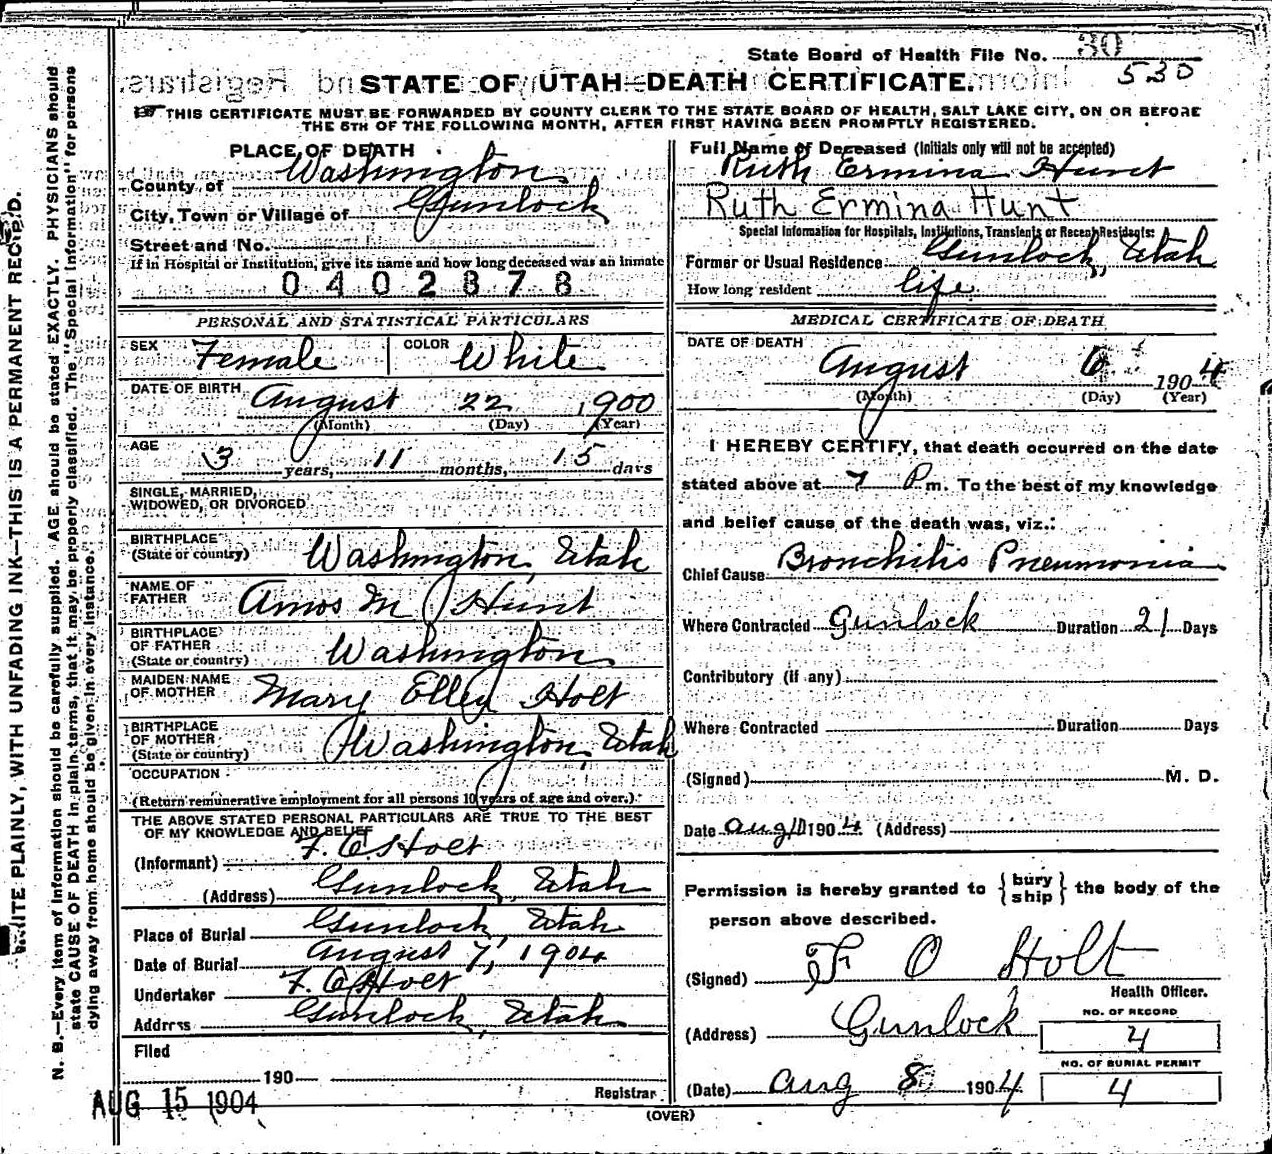 State Board of Health File No. 30
530
STATE OF UTAH—DEATH CERTIFICATE.
THIS CERTIFICATE MUST BE FORWARDED BY COUNTY CLERK TO THE STATE BOARD OF HEALTH, SALT LAKE CITY, ON OR BEFORE
THE 5TH OF THE FOLLOWING MONTH, AFTER FIRST HAVING BEEN PROMPTLY REGISTERED.
PLACE OF DEATH
County of Washington
City, Town or Village of Gunlock
Street and No.
If in Hospital or Institution, give its name and how long deceased was an inmate
0402878
PERSONAL AND STATISTICAL PARTICULARS
SEX Female COLOR White
DATE OF BIRTH August 22 1900
(Month) (Day) (Year)
AGE 3 years, 11 months, 15 days
SINGLE, MARRIED,
WIDOWED, OR DIVORCED
BIRTHPLACE
(State or country) Washington, Utah
NAME OF
FATHER Amos M Hunt
BIRTHPLACE
OF FATHER
(State or country) Washington
MAIDEN NAME
OF MOTHER Mary Ellen Holt
BIRTHPLACE
OF MOTHER
(State or country) Washington, Utah
OCCUPATION
(Return remunerative employment for all persons 10 years of age and over.)
THE ABOVE STATED PERSONAL PARTICULARS ARE TRUE TO THE BEST
OF MY KNOWLEDGE AND BELIEF
(Informant) F. O. Holt
(Address) Gunlock, Utah
Place of Burial Gunlock, Utah
Date of Burial August 7, 1904
Undertaker F. O. Holt
Address Gunlock, Utah
Filed
190
Registrar
AUG 15 1904
(OVER)
Full Name of Deceased (Initials only will not be accepted)
Ruth Ermina Hunt
Ruth Ermina Hunt
Special Information for Hospitals, Institutions, Transients or Recent Residents:
Former or Usual Residence Gunlock, Utah
How long resident life
MEDICAL CERTIFICATE OF DEATH
DATE OF DEATH
August 6 1904
(Month) (Day) (Year)
I HEREBY CERTIFY, that death occurred on the date
stated above at 7 P m. To the best of my knowledge
and belief cause of the death was, viz.:
Chief Cause Bronchitis Pneumonia
Where Contracted Gunlock Duration 21 Days
Contributory (if any)
Where Contracted Duration Days
(Signed) M. D.
Date Aug 1904 (Address)
Permission is hereby granted to {bury
ship} the body of the
person above described.
(Signed) F O Holt
Health Officer.
(Address) Gunlock
NO. OF RECORD
4
NO. OF BURIAL PERMIT
4
(Date) Aug 8 1904
WRITE PLAINLY, WITH UNFADING INK—THIS IS A PERMANENT RECORD.
N. B.—Every item of information should be carefully supplied. AGE should be stated EXACTLY. PHYSICIANS should
state CAUSE OF DEATH in plain terms, that it may be properly classified. The "Special Information" for persons
dying away from home should be given in every instance.